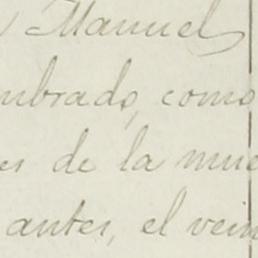 Manuel
mbrado, como
es de la mue
antes, el vein